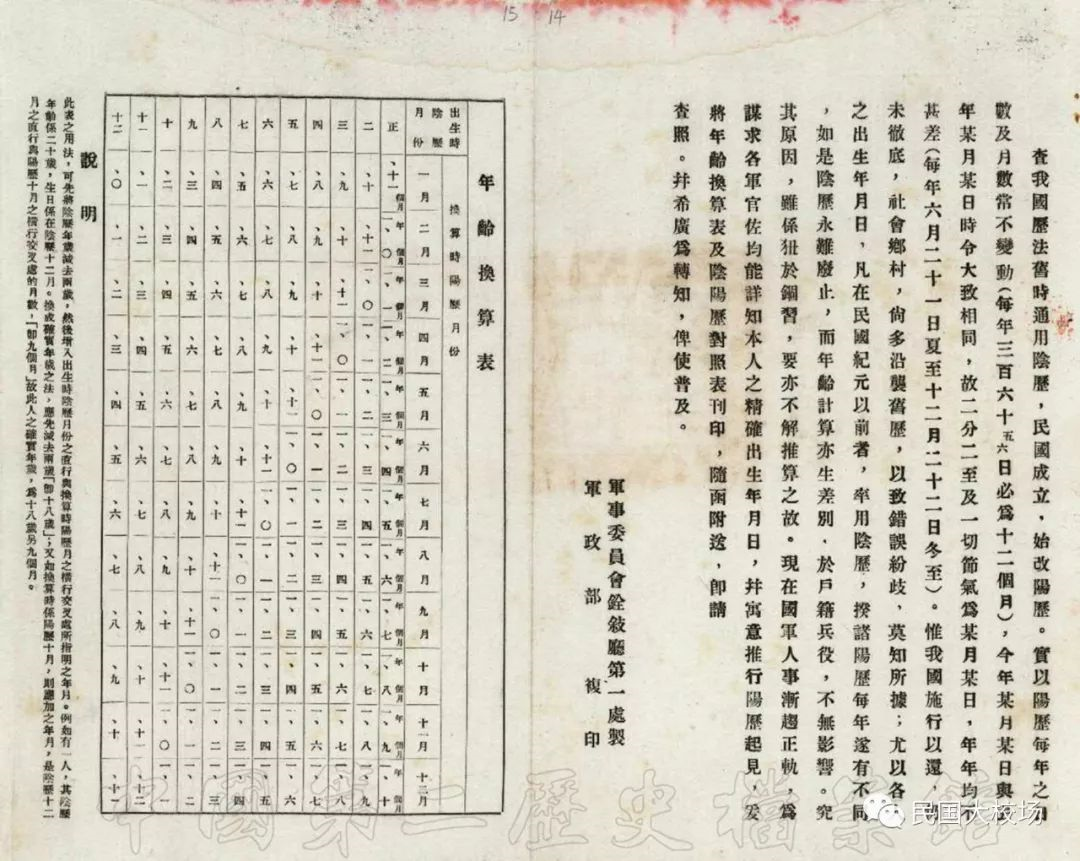 15 14
查我國歷法舊時通用陰歷,民國成立,始改陽歷。實以陽歷每年之日
數及月數常不變動(每年三百六十五六日必爲十二個月),今年某月某日與明
年某月某日時令大致相同,故二分二至及一切節氣爲某月某日,年年均不
甚差(每年六月二十一日夏至十二月二十二日冬至)。惟我國施行以還,
未徹底,社會鄉村,尙多沿襲舊歷,以致錯誤紛歧,莫知所據;尤以各
之出生年月日,凡在民國紀元以前者,率用陰歷,揆諸陽歷每年遂有不同
,如是陰歷永難廢止,而年齡計算亦生差別.於戶籍兵役,不無影響。究
其原因,雖係狃於錮習,要亦不解推算之故。現在國軍人事漸趨正軌,爲
謀求各軍官佐均能詳知本人之精確出生年月日,幷寓意推行陽歷起見,爰
將年齡換算表及陰陽歷對照表刊印,隨函附送,卽請
查照。幷希廣爲轉知,俾使普及。
軍事委員會銓敍廳第一處製
軍政部複印
年齡換算表
換算時陽歷月份
出生時陰歷月份 一月 二月 三月 四月 五月 六月 七月 八月 九月 十月 十一月 十二月
正 、十一個月 一年、〇個月 一年、一個月 一年、二個月 一年、三個月 一年、四個月 一年、五個月 一年、六個月 一年、七個月 一年、八個月 一年、九個月 一年、十個月
二 、十 、十一 一、〇 一、一 一、二 一、三 一、四 一、五 一、六 一、七 一、八 一、九
三 、九 、十 、十一 一、〇 一、一 一、二 一、三 一、四 一、五 一、六 一、七 一、八
四 、八 、九 、十 、十一 一、〇 一、一 一、二 一、三 一、四 一、五 一、六 一、七
五 、七 、八 、九 、十 、十一 一、〇 一、一 一、二 一、三 一、四 一、五 一、六
六 、六 、七 、八 、九 、十 、十一 一、〇 一、一 一、二 一、三 一、四 一、五
七 、五 、六 、七 、八 、九 、十 、十一 一、〇 一、一 一、二 一、三 一、四
八 、四 、五 、六 、七 、八 、九 、十 、十一 一、〇 一、一 一、二 一、三
九 、三 、四 、五 、六 、七 、八 、九 、十 、十一 一、〇 一、一 一、二
十 、二 、三 、四 、五 、六 、七 、八 、九 、十 、十一 一、〇 一、一
十一 、一 、二 、三 、四 、五 、六 、七 、八 、九 、十 、十一 、十二
十二 、〇 、一 、二 、三 、四 、五 、六 、七 、八 、九 、十 、十一
說明
此表之用法,可先將陰歷年歲減去兩歲,然後增入出生時陰歷月份之直行與換算時陽歷月之橫行交叉處所指明之年月。例如有一人,其陰歷
年齡係二十歲,生日係在陰歷十二月。換成確實年歲之法,應先減去兩歲「卽十八歲」;又如換算時係陽歷十月,則應加之年月,是陰歷十二
月之直行與陽歷十月之橫行交叉處的月數,「卽九個月」故此人之確實年歲,爲十八歲另九個月。
中國第二歷史檔案館
民国大校场